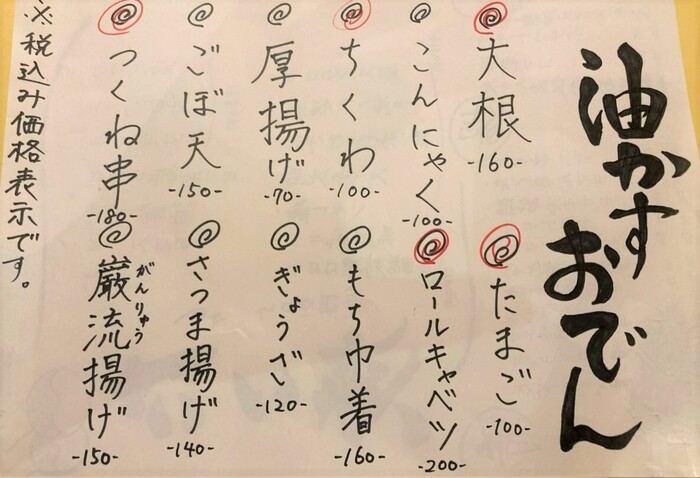 油かす
おでん
大根
-160-
こんにゃく
-100-
ちくわ
-100-
厚揚げ
-70-
ごぼ天
-150-
つくね串
-180-
たまご
-100-
ロールキャベツ
-200-
もち巾着
-160-
ぎょうざ
-120-
さつま揚げ
-140-
巌流揚げ
がんりゅう
-150-
※税込み価格表示です。